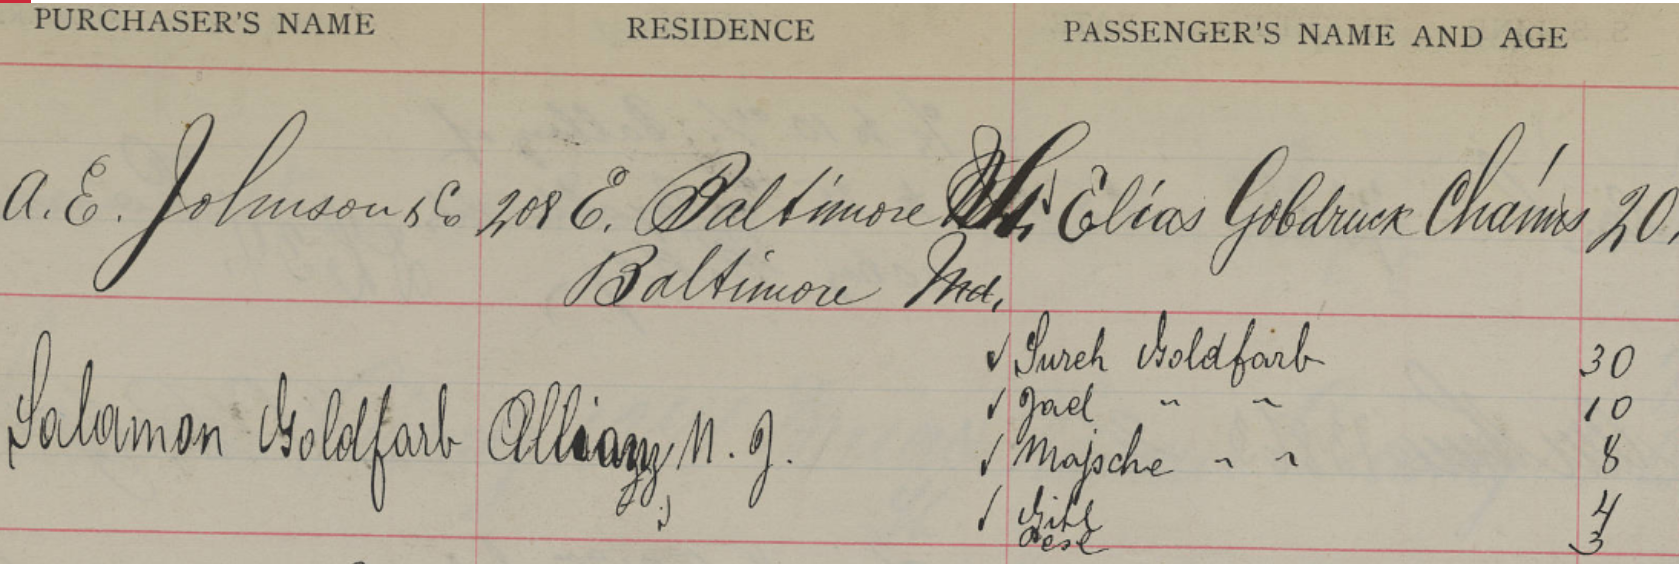 PURCHASER'S NAME RESIDENCE PASSENGER'S NAME AND AGE
A. E. Johnson & Co 208 E. Baltimore Elias Gobdruck Chaims 20
Baltimore Md.
✓ Sureh Goldfarb 30
✓ Jael " " 10
Salamon Goldfarb N. J.
✓ Majsche " " 8
✓ Gitl 4
3